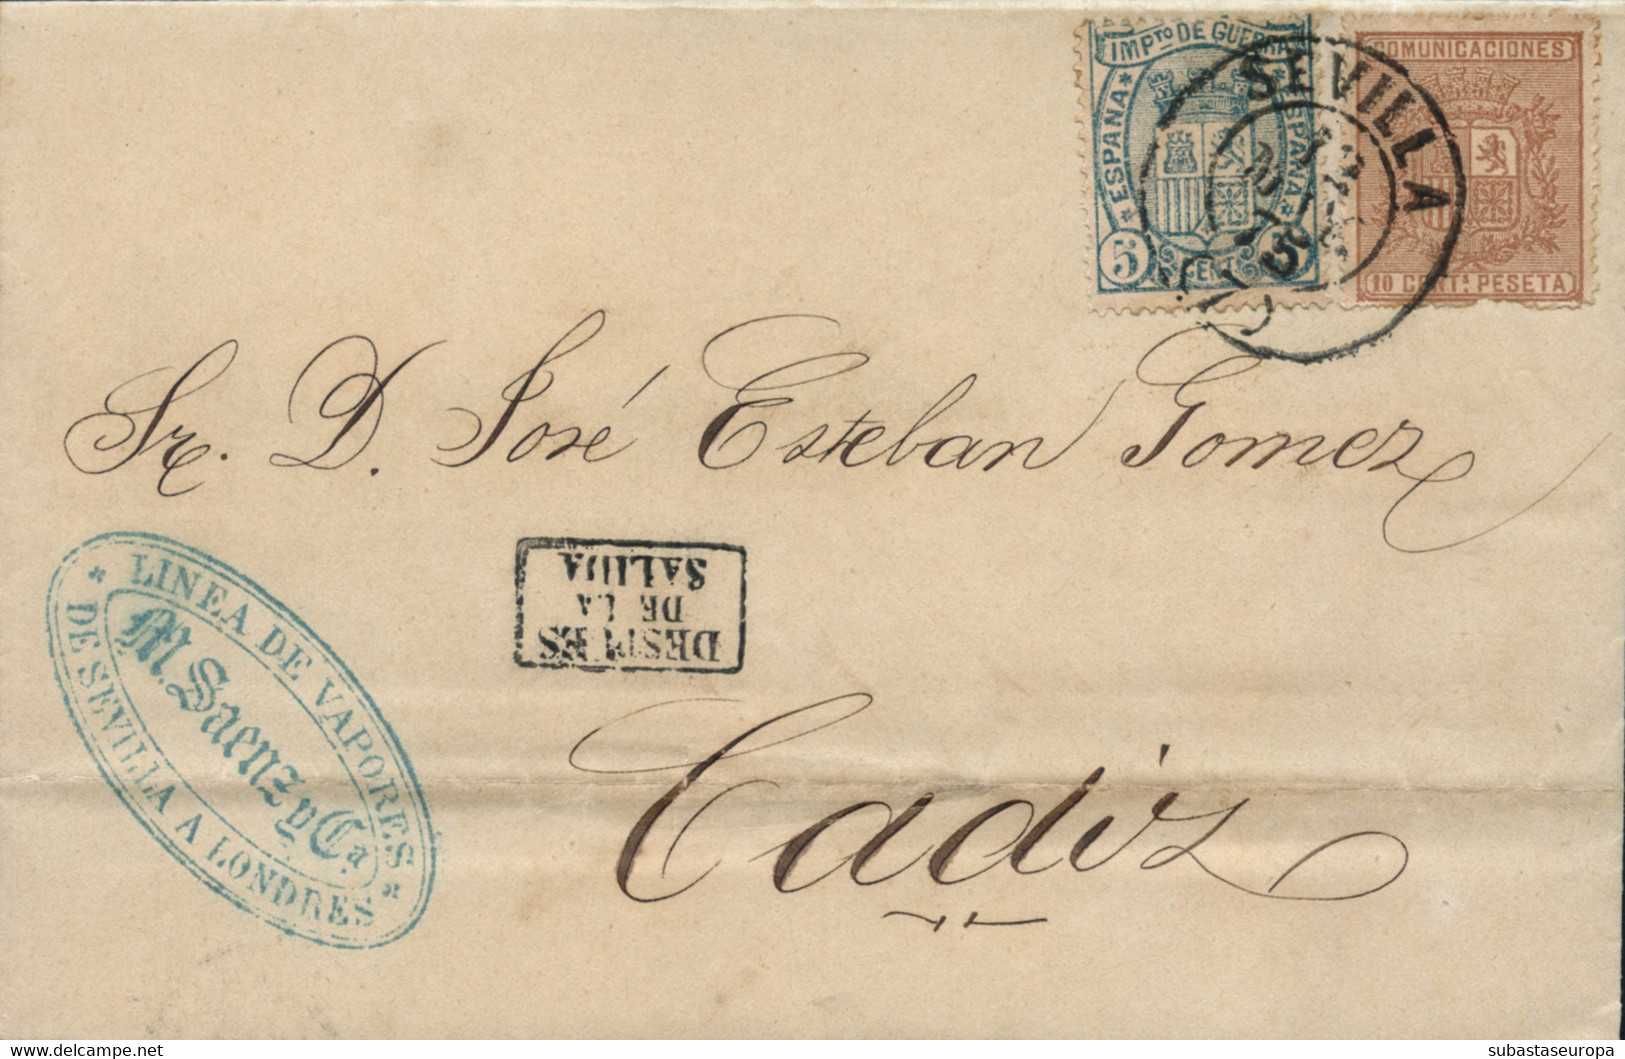 IMPto DE GUERRA
ESPAÑA
ESPAÑA
5 CENT 5
COMUNICACIONES
10 CENTs PESETA
SEVILLA
75
Sr. D. José Esteban Gomez
DESPUES
DE LA
SALIDA
LINEA DE VAPORES
M. Saenz y Ca.
DE SEVILLA A LONDRES
Cadiz
delcampe.net
subastaseuropa